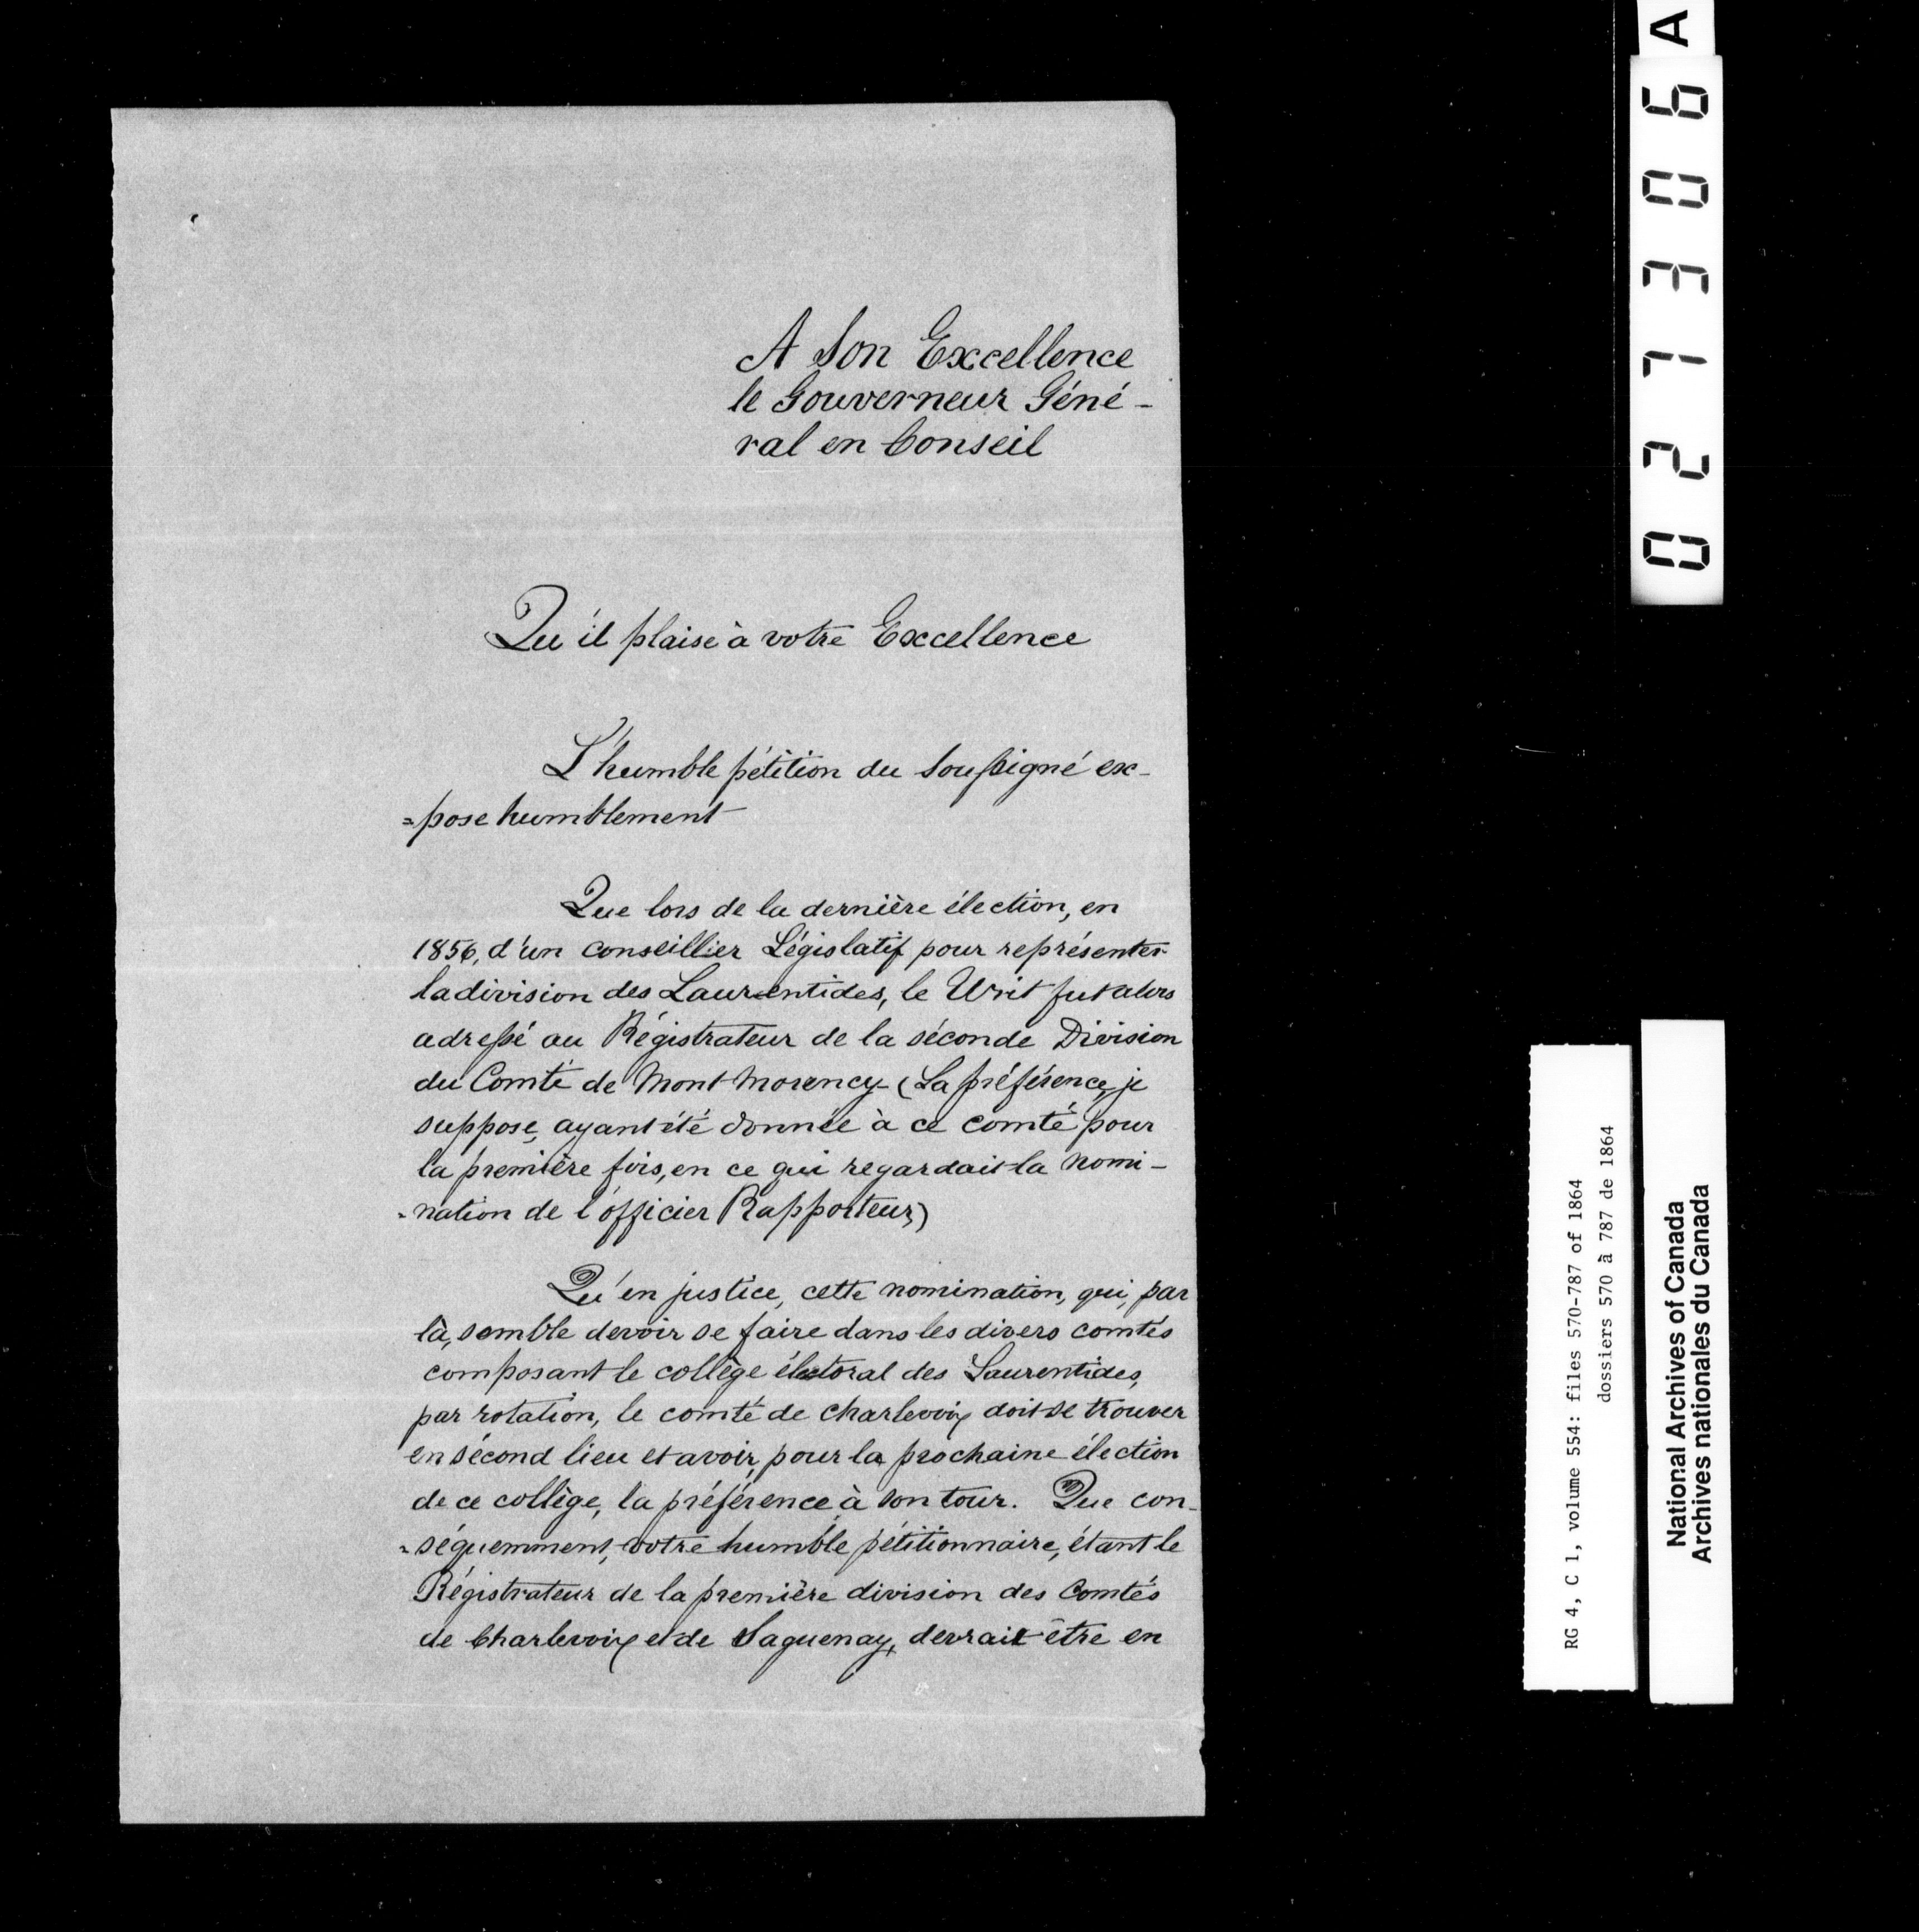 A Son Excellence
le Gouverneur Géné-
ral en Conseil
Qu'il plaise à votre Excellence
L'humble pétition du Soussigné ex-
=pose humblement
Que lors de la dernière élection, en
1856, d'un conseillier Législatif pour représenter
la division des Laurentides, le Writ fut alors
adressé au Régistrateur de la séconde Division
du Comté de Mont morency (La préférence, je
suppose, ayant été donnée à ce comté pour
la première fois, en ce qui regardait la nomi-
-nation de l'officier Rapporteur)
Qu'en justice, cette nomination, qui, par
là, semble devoir se faire dans les divers comtés
composant le collège électoral des Laurentides,
par rotation, le comté de Charlevoix doit se trouver
en sécond lieu et avoir, pour la prochaine élection
de ce collège, la préférence à son tour. Que con-
-séquemment, votre humble pétitionnaire, étant le
Régistrateur de la première division des Comtés
de Charlevoix et de Saguenay, devrait être en
027306 A
RG 4, C 1, volume 554: files 570-787 of 1864
dossiers 570 à 787 de 1864
National Archives of Canada
Archives nationales du Canada